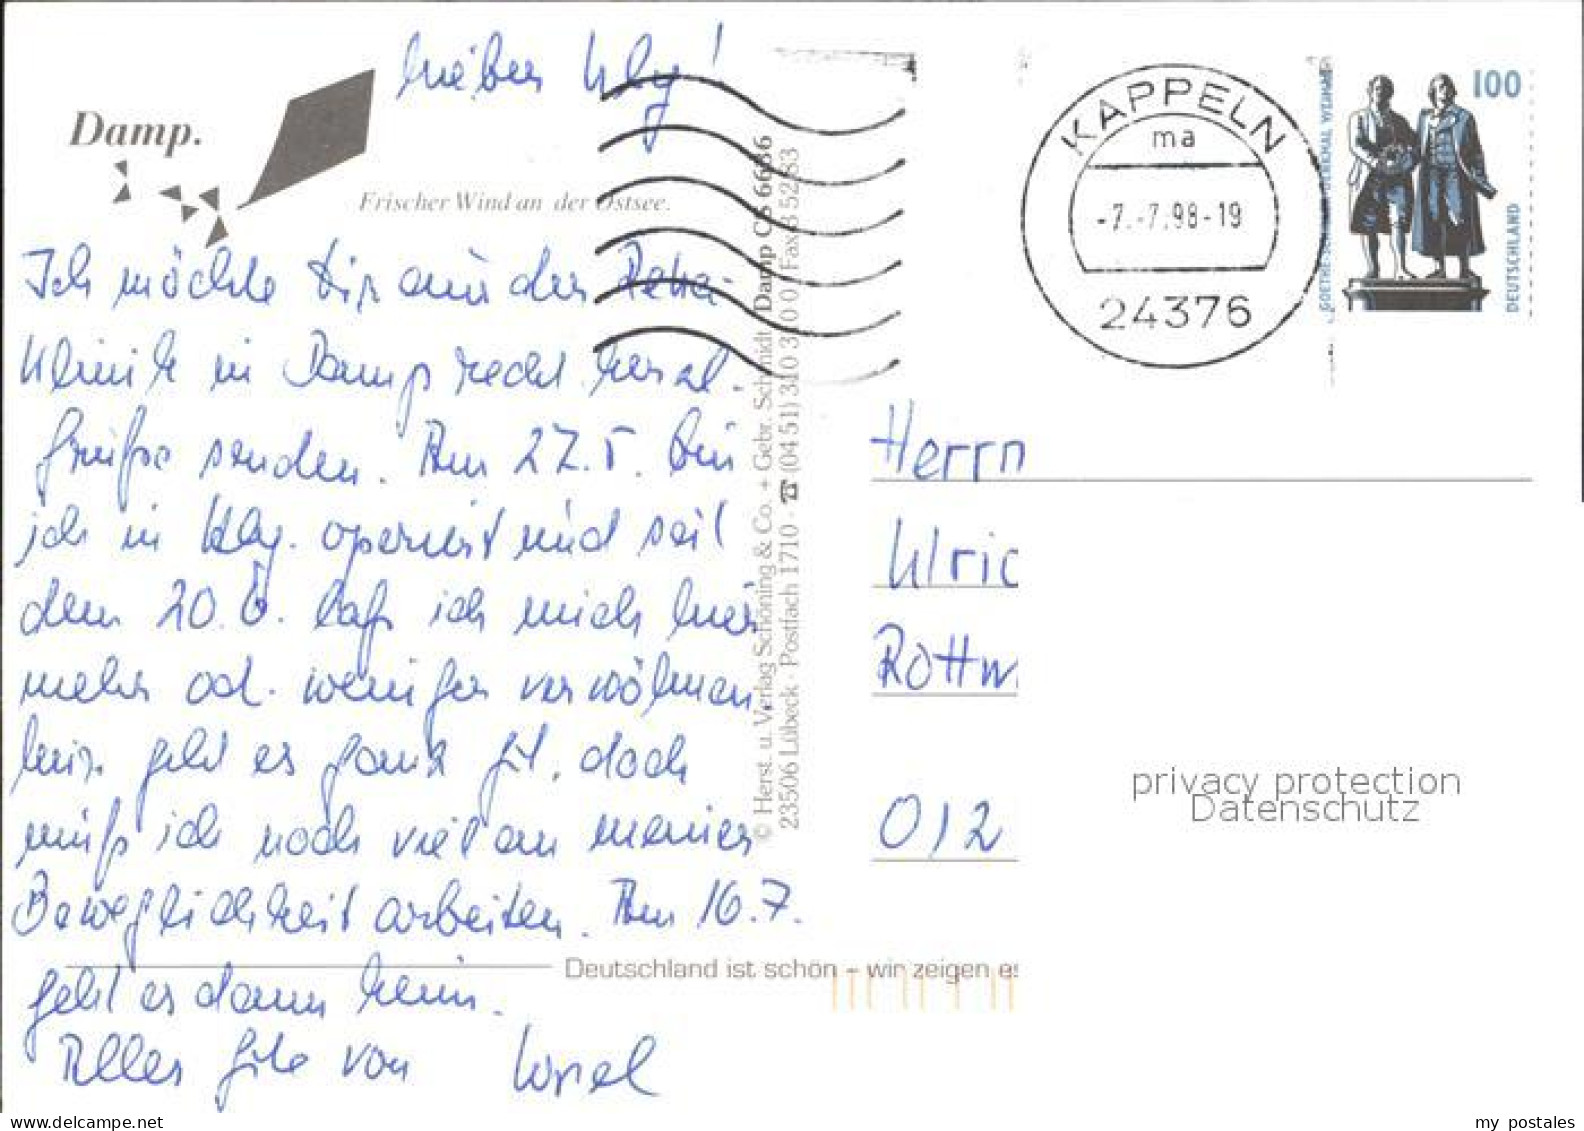 Lieber Uly!
Damp.
Frischer Wind an der Ostsee.
Ich möchte Dir aus der Reha-
Klinik in Damp recht herzl.
Grüße senden. Am 27.5. bin
ich in Hbg. operiert und seit
dem 20.6. laß ich mich hier
mehr od. weniger verwöhnen.
Mir geht es ganz gut, doch
muß ich noch viel an meiner
Beweglichkeit arbeiten. Am 16.7.
geht es dann heim.
Alles Gute von
© Herst. u. Verlag Schöning & Co. + Gebr. Schmidt Damp CS 6636
23506 Lübeck · Postfach 1710 · ☎ (04 51) 310 310 0 Fax 3 52 83
Deutschland ist schön – wir zeigen es
KAPPELN
ma
-7.-7.98-19
24376
100
GOETHE-SCHILLER-DENKMAL WEIMAR
DEUTSCHLAND
Herrn
Ulric
Rottw
012
privacy protection
Datenschutz
my postales